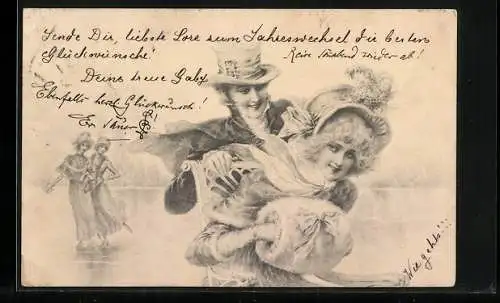 Sende Dir, liebste Lore zum Jahreswechsel die besten
Glückwünsche!
Reise Sonnabend wieder ab!
Deine treue Gaby
Ebenfalls herzl. Glückwunsch!
Er
Wie geht's!!!